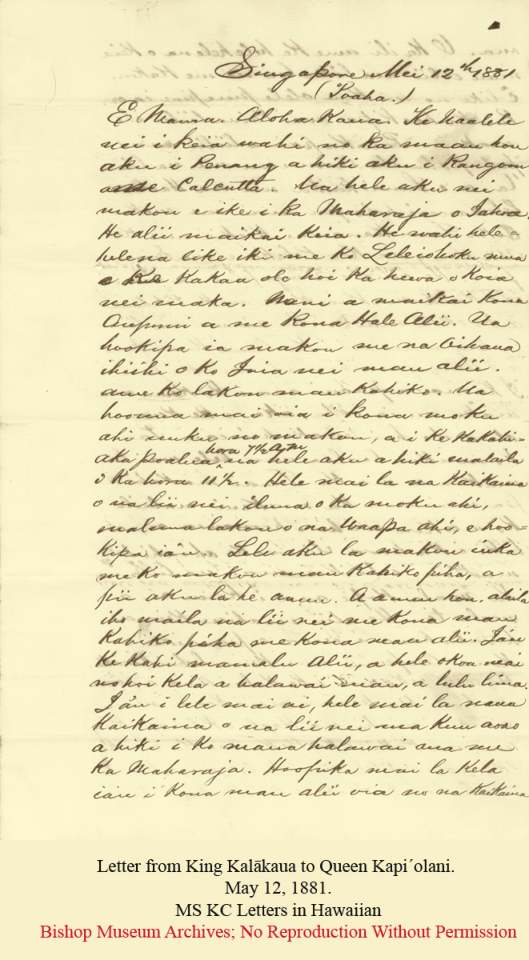 Singapore Mei 12th 1881
(Poaha.)
E Mauna. Aloha Kaua. Ke Kaalele
nei i keia wahi no ka maau hou
aku i Penang a hiki aku i Rangoon
ame Calcutta. Ua hele aku nei
makou e ike i ka Maharaja o Iahoa.
He alii maikai keia. He wahi hele-
helena like iki me ko Leleiohoku nuna
e Kakaa ole hoi ka hewa o koia
nei maka. Nani a maikai kona
Aupuni a me kona Hale Alii. Ua
hookipa ia makou me na
o ko Inia nei mau alii.
ame ko lakou mau Kahiko. Ua
hoouna mai oia i kona moku
ahi no makou, a i ke kakahi-
aka Poalua hora 7½ AM ua hele aku a hiki malaila
o ka hora 11½. Hele mai la na Kaikaina
o na lii nei iluna o ka moku ahi,
maluna lakou o na Waapa ahi, e hoo-
kipa ia'u. Lele aku la makou iuka
me ko makou mau Kahiko piha, a
pii aku la he anuu. A anuu hou, alaila
iho maila na lii nei me kona mau
Kahiko piha me kona mau alii. Ia'u
ke Kahi mamalu Alii, a hele okoa
nohoi kela a halawai maua, a lulu lima.
Ia'u i lele mai ai, hele mai la na
Kaikaina o na lii nei ma kuu aoao
a hiki i ko maua halawai ana me
Ka Maharaja. Hoopuka mai la kela
ia'u i kona mau alii oia no na Kaikaina
Letter from King Kalākaua to Queen Kapiʻolani.
May 12, 1881.
MS KC Letters in Hawaiian
Bishop Museum Archives; No Reproduction Without Permission